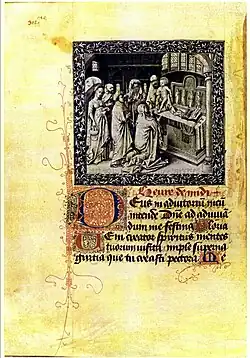 Heure de midi
Deus in adiutoriu meu
intende Dne ad adiuua
dum me festina Gloria
Veni creator spiritus mentes
tuorum visita imple superna
gratia que tu creasti pectora Me